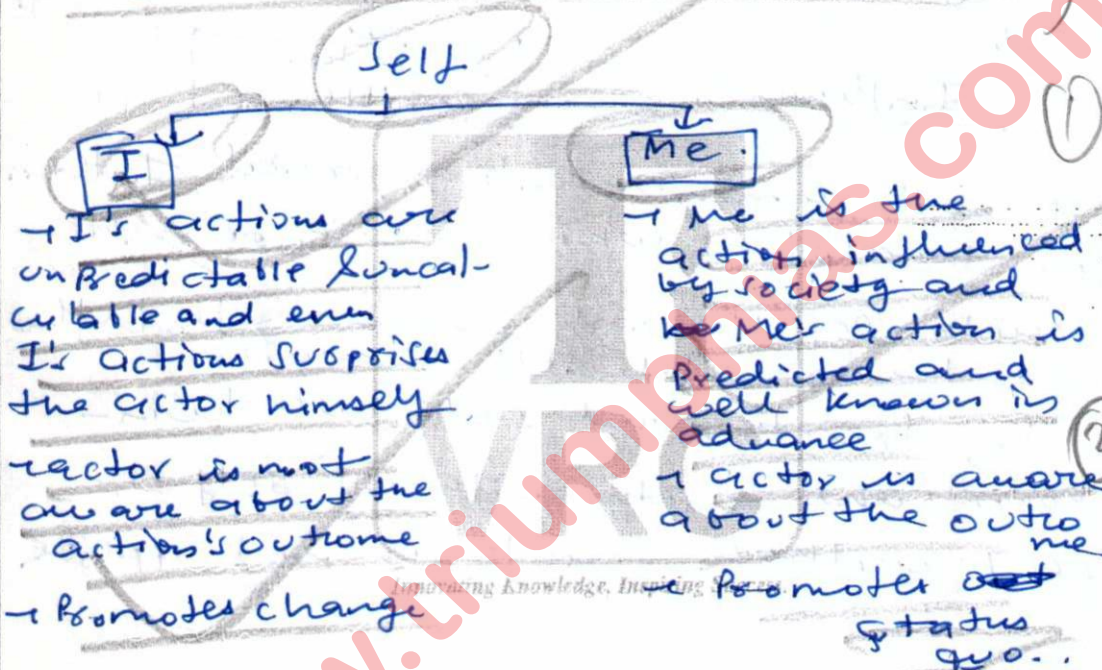 Self
I
→ I's actions are
unpredictable & uncal-
culable and even
I's actions surprises
the actor himself
→ actor is not
aware about the
action's outcome
→ Promotes change
Me.
→ Me is the
action influenced
by society and
Me's action is
predicted and
well known in
advance
→ actor is aware
about the outco
me
→ Promotes
status
quo.
1
2
VRC
Innovating Knowledge, Inspiring Success
w.triumphias.com